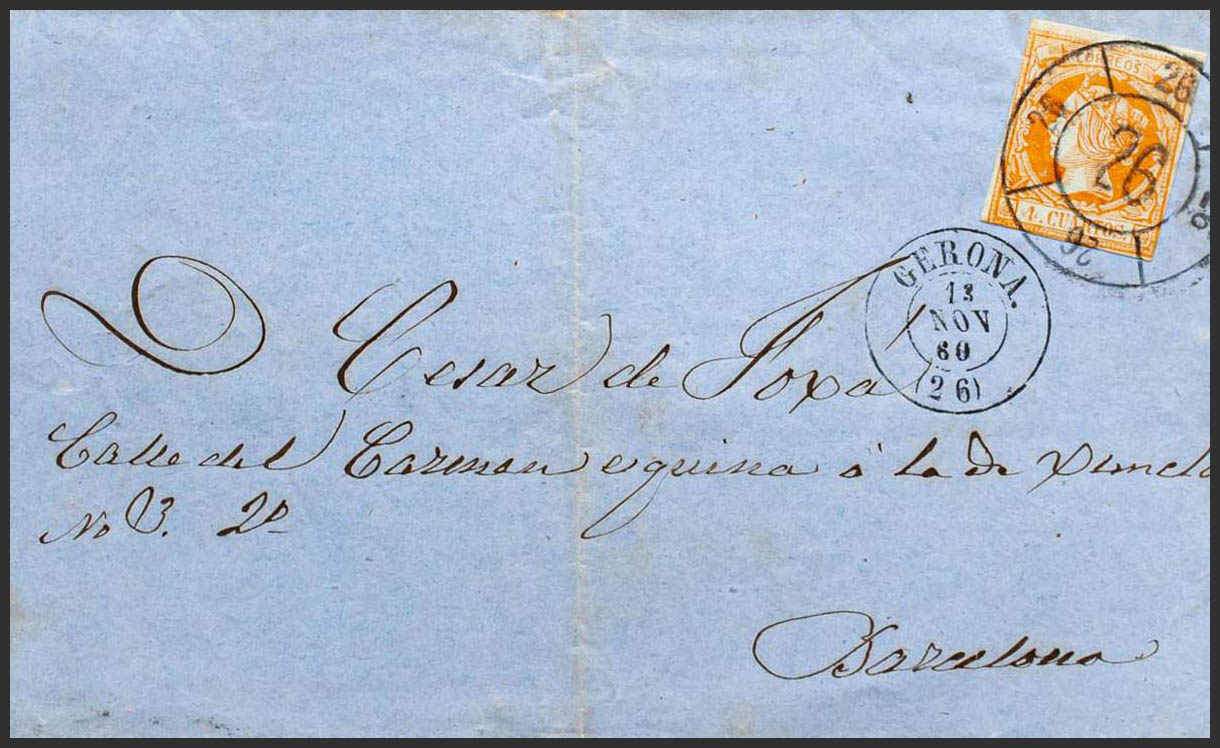 CORREOS
26
26
26
26
4 CUARTOS.
GERONA.
13
NOV
60
(26)
D Cesar de Foxá
Calle del Carmen esquina á la de
No 3. 2º
Barcelona